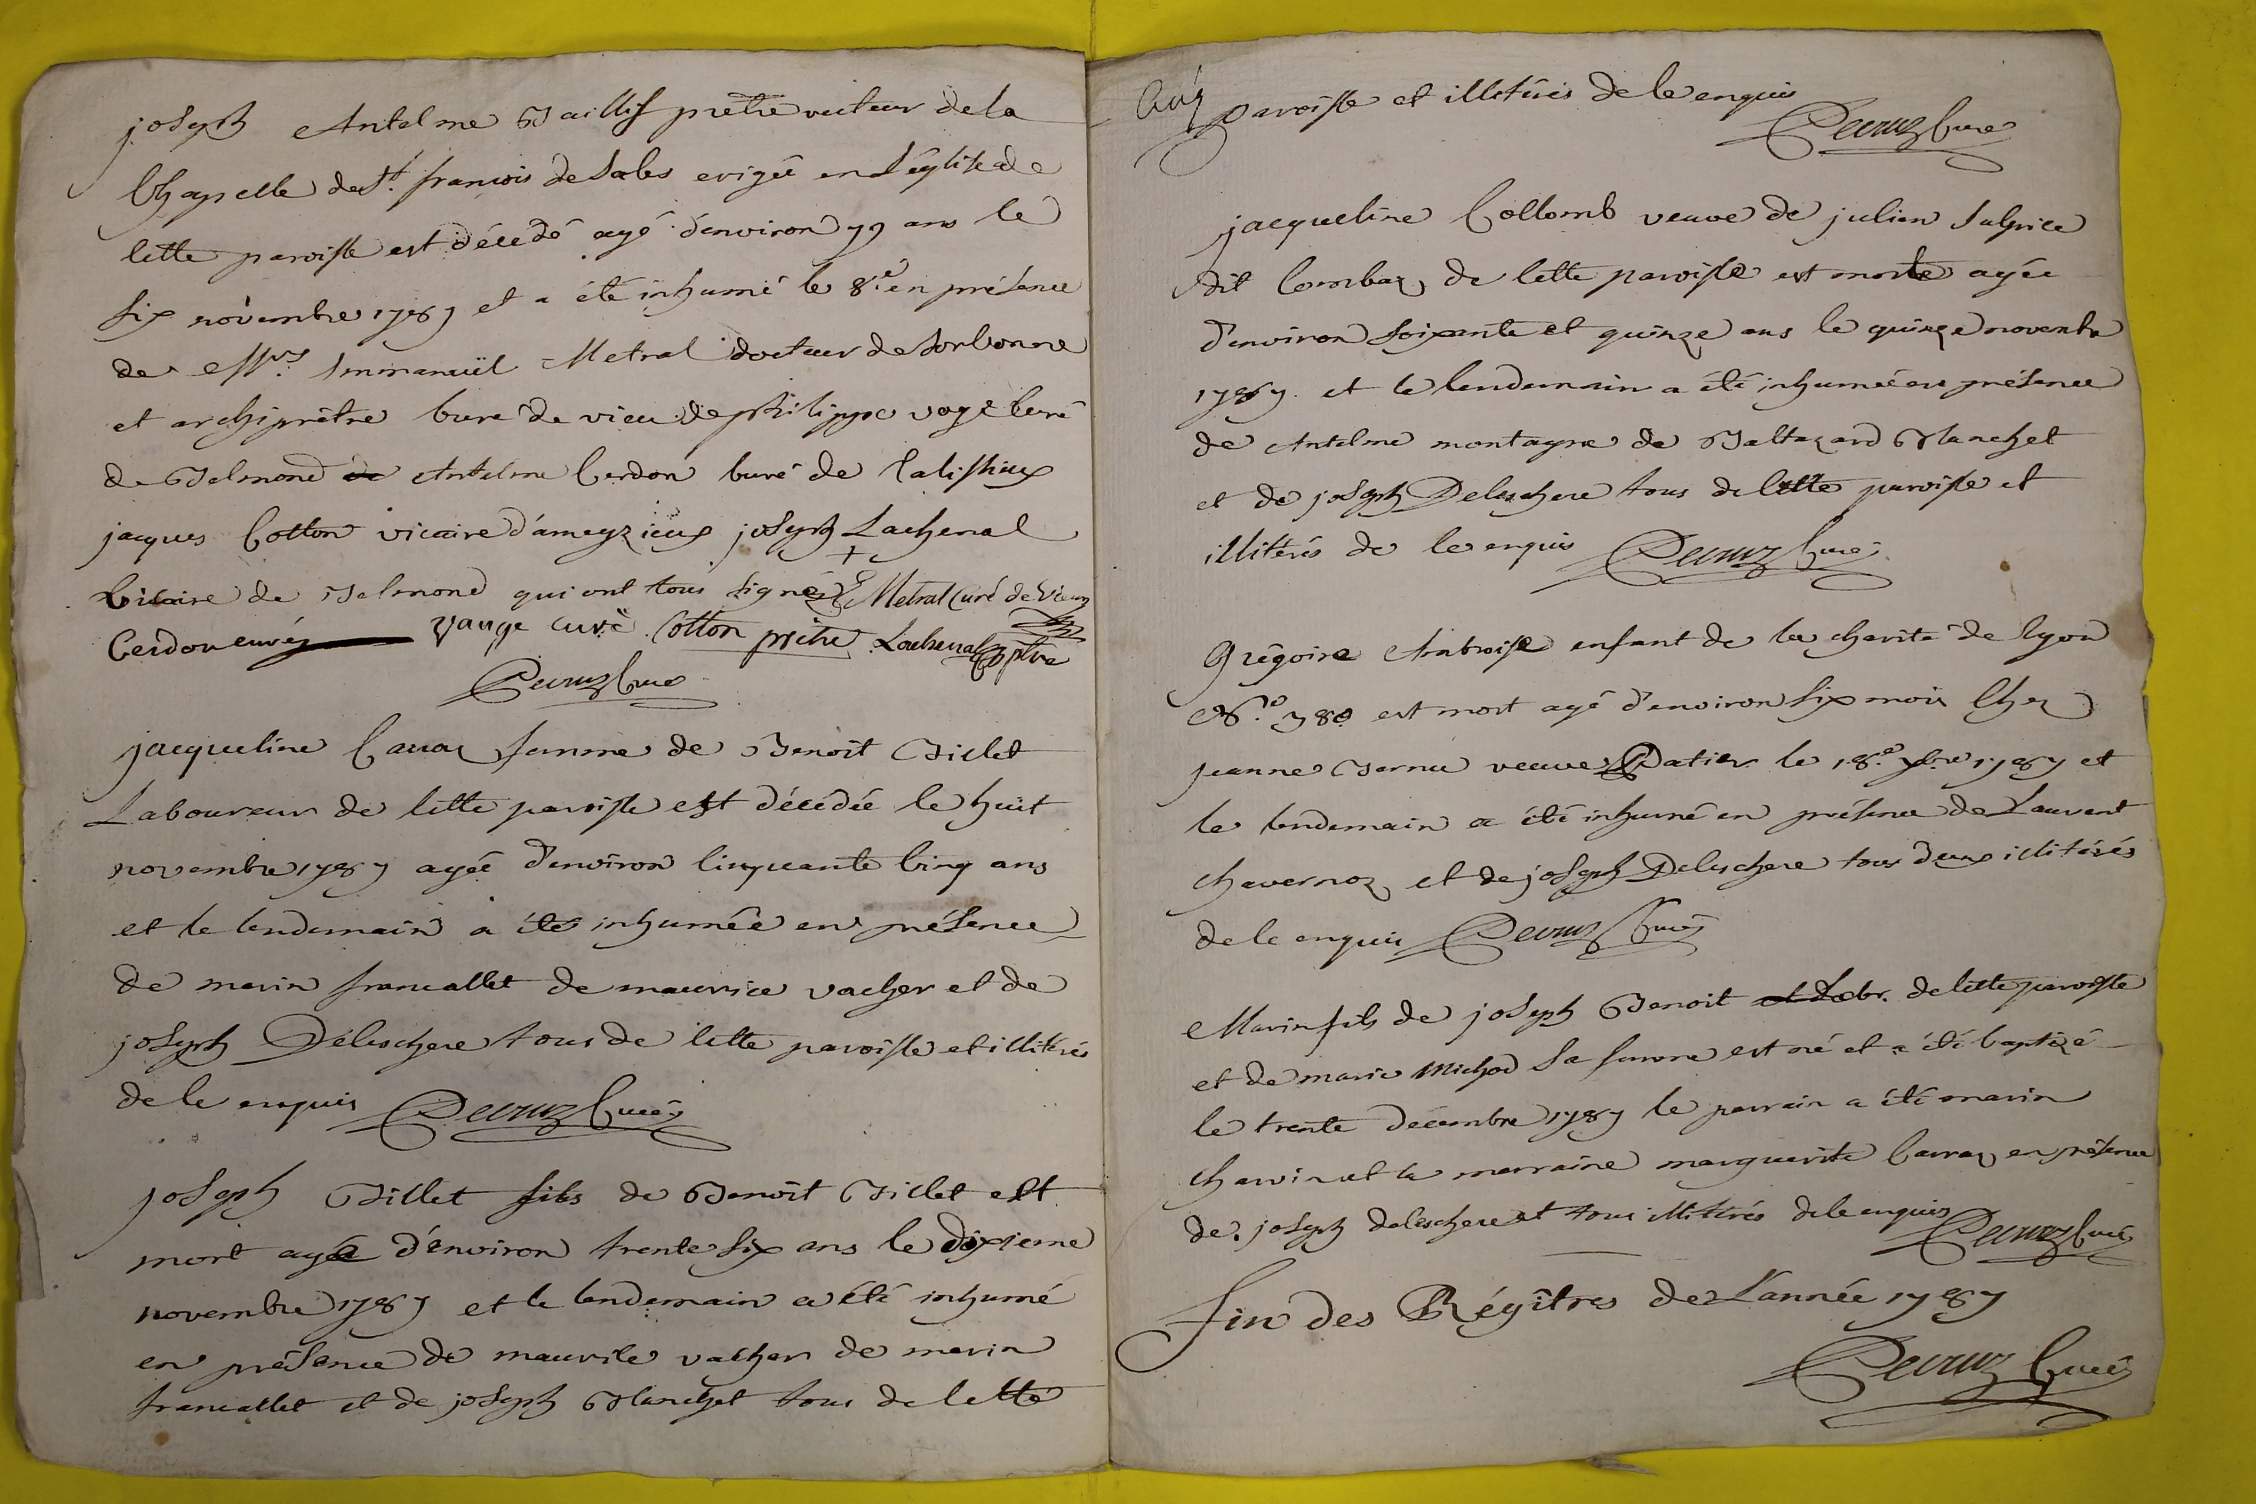 joseph Antelme Baillif prêtre recteur de la
Chapelle de St. francois de Sales erigée en L'église de
cette paroisse est décédé agé d'environ 79 ans le
six novembre 1787 et a été inhumé le 8.e en présence
de Mrs. Immanuël Metral docteur de Sorbonne
et archiprêtre curé de vieu de philippe voge curé
de Belmond Antelme Cerdon curé de Talissieux
jacques Cotton vicaire d'ameyzieux joseph Lachenal
vicaire de Belmond qui ont tous signés Metral curé de Vieu
Cerdon curé Vauge curé Cotton prêtre Lachenal ptre
Decruz Curé
jacqueline Cavaz femme de Benoit Billet
Laboureur de cette paroisse est décédée le huit
novembre 1787 agée d'environ cinquante cinq ans
et le lendemain a été inhumée en présence
de marin francallet de maurice vacher et de
joseph Déleschere tous de cette paroisse et illitérés
de ce enquis Decruz Curé
joseph Billet fils de Benoit Billet est
mort agé d'environ trente six ans le dixieme
novembre 1787 et le lendemain a été inhumé
en présence de maurice vacher de marin
francallet et de joseph Blanchet tous de cette
paroisse et illitérés de ce enquis
Decruz Curé
jacqueline Collomb veuve de julien Sulpice
dit Combaz de cette paroisse est morte agée
d'environ soixante et quinze ans le quinze novembre
1787. et le lendemain a été inhumée en présence
de Antelme montagne de Baltazard Blanchet
et de joseph Deleschere tous de cette paroisse et
illitérés de ce enquis Decruz Curé
Grégoire Ambroise enfant de la charité de lyon
N.o 780 est mort agé d'environ six mois Chez
jeanne Bernu veuve Patier le 18.e 9bre 1787 et
le lendemain a été inhumé en présence de Laurent
chavernoz et de joseph Deleschere tous deux illitérés
de ce enquis Decruz Curé
Marin fils de joseph Benoit et Labr. de cette paroisse
et de marie Michod sa femme est né et a été baptizé
le trente décembre 1787 le parrain a été marin
charvin et la marraine marguerite Carraz en présence
de joseph deleschere et tous illitérés de ce enquis
Decruz Curé
Fin des Régîtres de L'année 1787
Decruz Curé